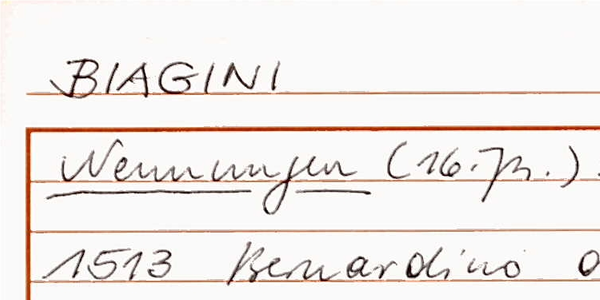 BIAGINI
Nennungen (16. Jh.).
1513 Bernardino